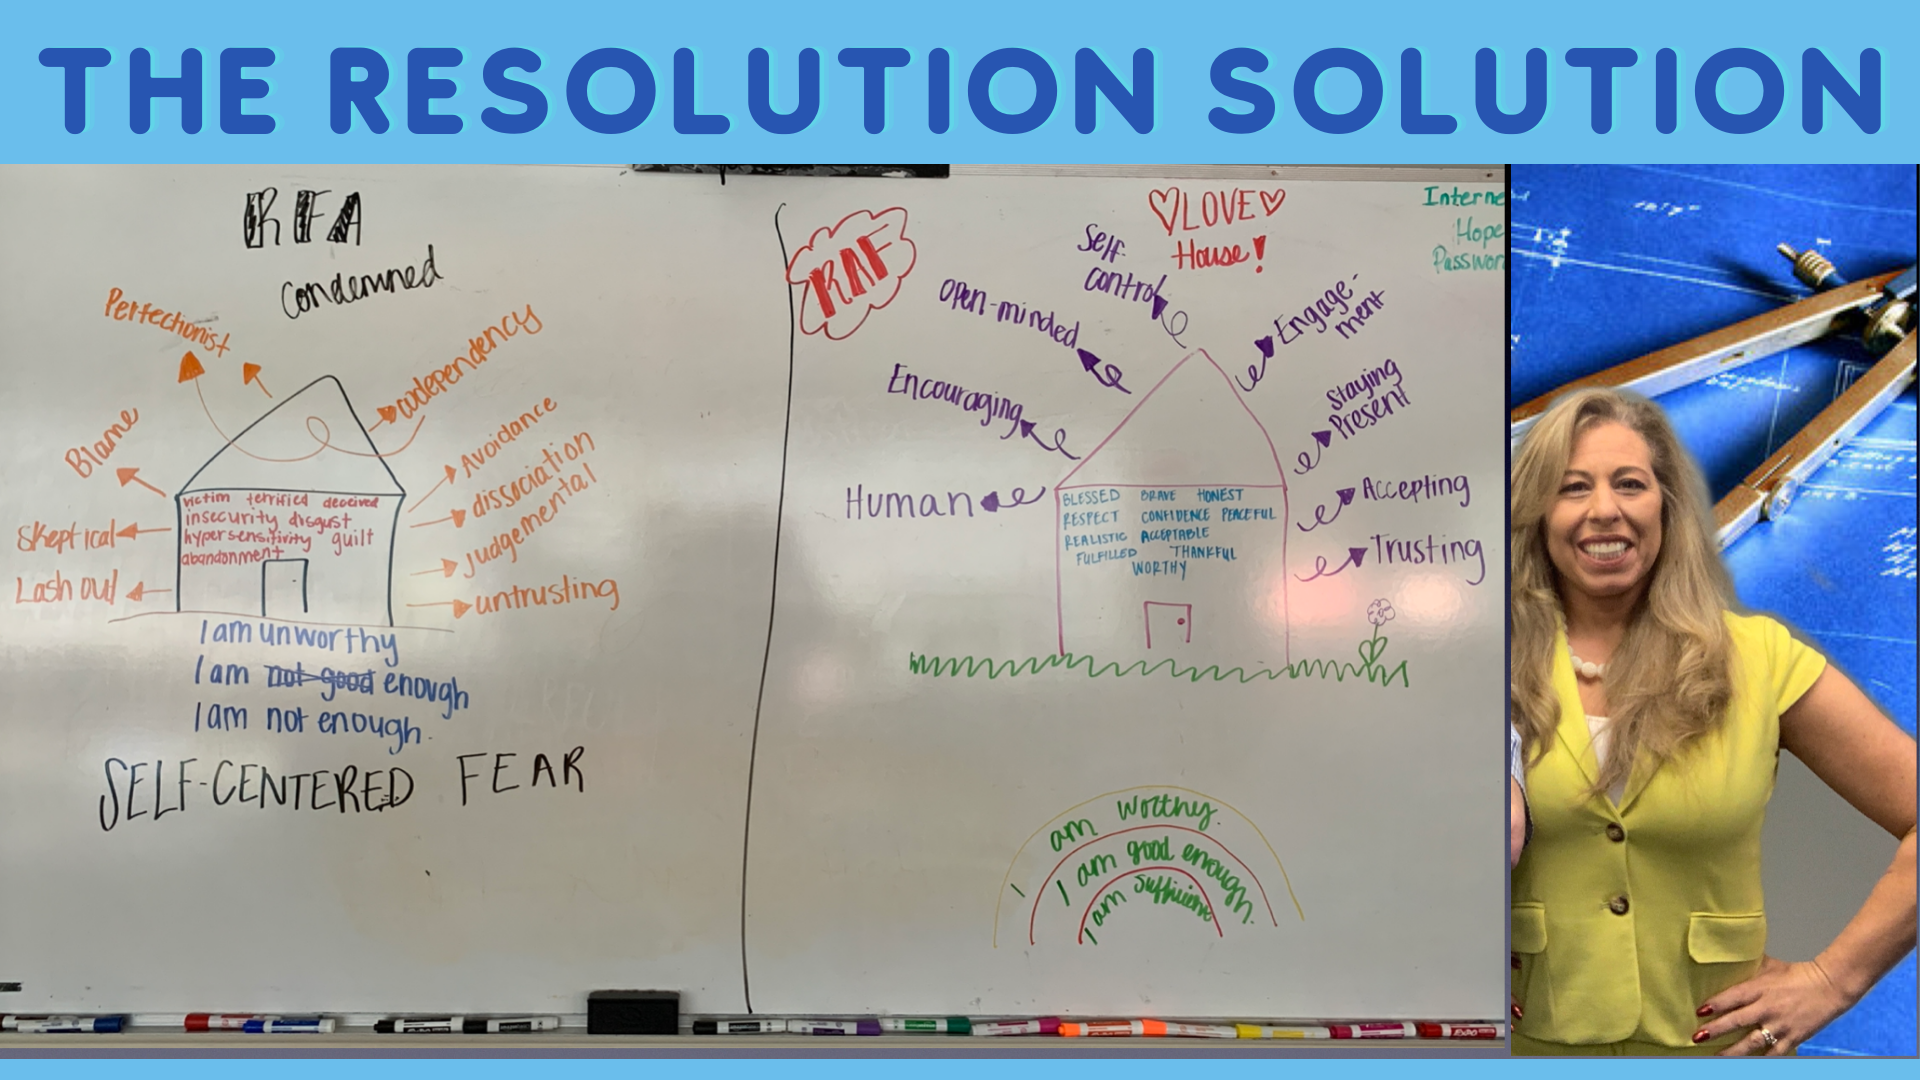 THE RESOLUTION SOLUTION
RFA
Condemned
Perfectionist
codependency
Blame
Avoidance
dissociation
Judgemental
Skeptical
Lash out
untrusting
victim terrified deceived
insecurity disgust
hypersensitivity guilt
abandonment
I am unworthy
I am not good enough
I am not enough.
SELF-CENTERED FEAR
RAF
♡LOVE♡
House!
Self-
control
Open-minded
Engage-
ment
Encouraging
Staying
Present
Human
Accepting
Trusting
BLESSED BRAVE HONEST
RESPECT CONFIDENCE PEACEFUL
REALISTIC ACCEPTABLE
FULFILLED THANKFUL
WORTHY
I am worthy.
I am good enough.
I am sufficient
Interne
Hope
Passwor